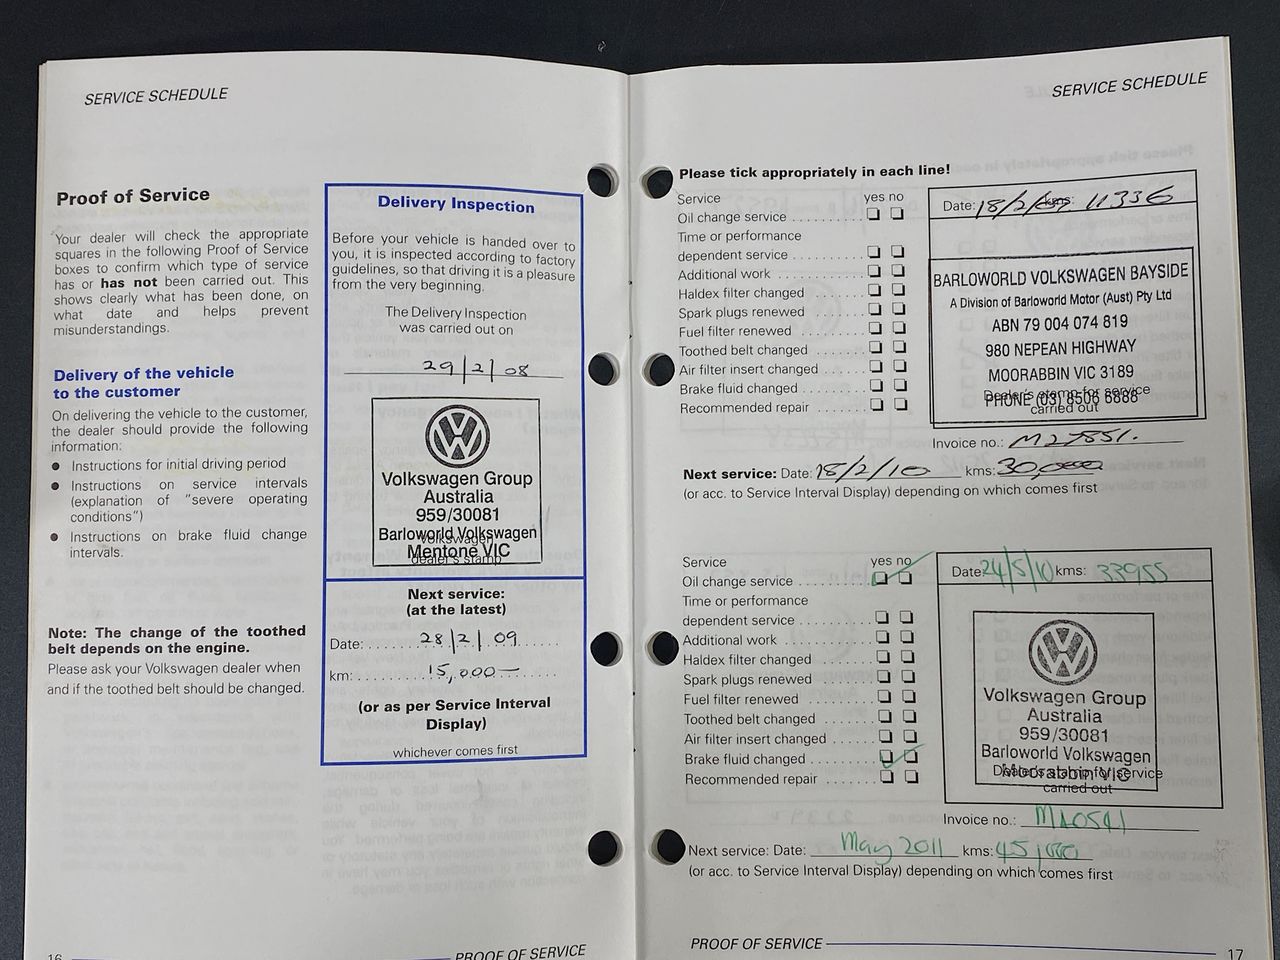 SERVICE SCHEDULE
Proof of Service
Your dealer will check the appropriate
squares in the following Proof of Service
boxes to confirm which type of service
has or has not been carried out. This
shows clearly what has been done, on
what date and helps prevent
misunderstandings.
Delivery of the vehicle
to the customer
On delivering the vehicle to the customer,
the dealer should provide the following
information:
● Instructions for initial driving period
● Instructions on service intervals
(explanation of "severe operating
conditions")
● Instructions on brake fluid change
intervals.
Note: The change of the toothed
belt depends on the engine.
Please ask your Volkswagen dealer when
and if the toothed belt should be changed.
Delivery Inspection
Before your vehicle is handed over to
you, it is inspected according to factory
guidelines, so that driving it is a pleasure
from the very beginning.
The Delivery Inspection
was carried out on
29/2/08
Volkswagen Group
Australia
959/30081
Barloworld Volkswagen
Volkswagen
Mentone VIC
dealer's stamp
Next service:
(at the latest)
Date: 28/2/09
km: 15,000—
(or as per Service Interval
Display)
whichever comes first
16
PROOF OF SERVICE
SERVICE SCHEDULE
Please tick appropriately in each line!
Service yes no
Oil change service
Time or performance
dependent service
Additional work
Haldex filter changed
Spark plugs renewed
Fuel filter renewed
Toothed belt changed
Air filter insert changed
Brake fluid changed
Recommended repair
Date: 18/2/09 kms: 11336
BARLOWORLD VOLKSWAGEN BAYSIDE
A Division of Barloworld Motor (Aust) Pty Ltd
ABN 79 004 074 819
980 NEPEAN HIGHWAY
MOORABBIN VIC 3189
Dealer's stamp for service
PHONE (03) 8506 6888
carried out
Invoice no.: M27851.
Next service: Date: 18/2/10 kms: 30,000
(or acc. to Service Interval Display) depending on which comes first
Service yes no
Oil change service
Time or performance
dependent service
Additional work
Haldex filter changed
Spark plugs renewed
Fuel filter renewed
Toothed belt changed
Air filter insert changed
Brake fluid changed
Recommended repair
Date: 24/5/10 kms: 33955
Volkswagen Group
Australia
959/30081
Barloworld Volkswagen
Dealer's stamp for service
Moorabbin VIC
carried out
Invoice no.:
Next service: Date: May 2011 kms: 45,000
(or acc. to Service Interval Display) depending on which comes first
PROOF OF SERVICE
17